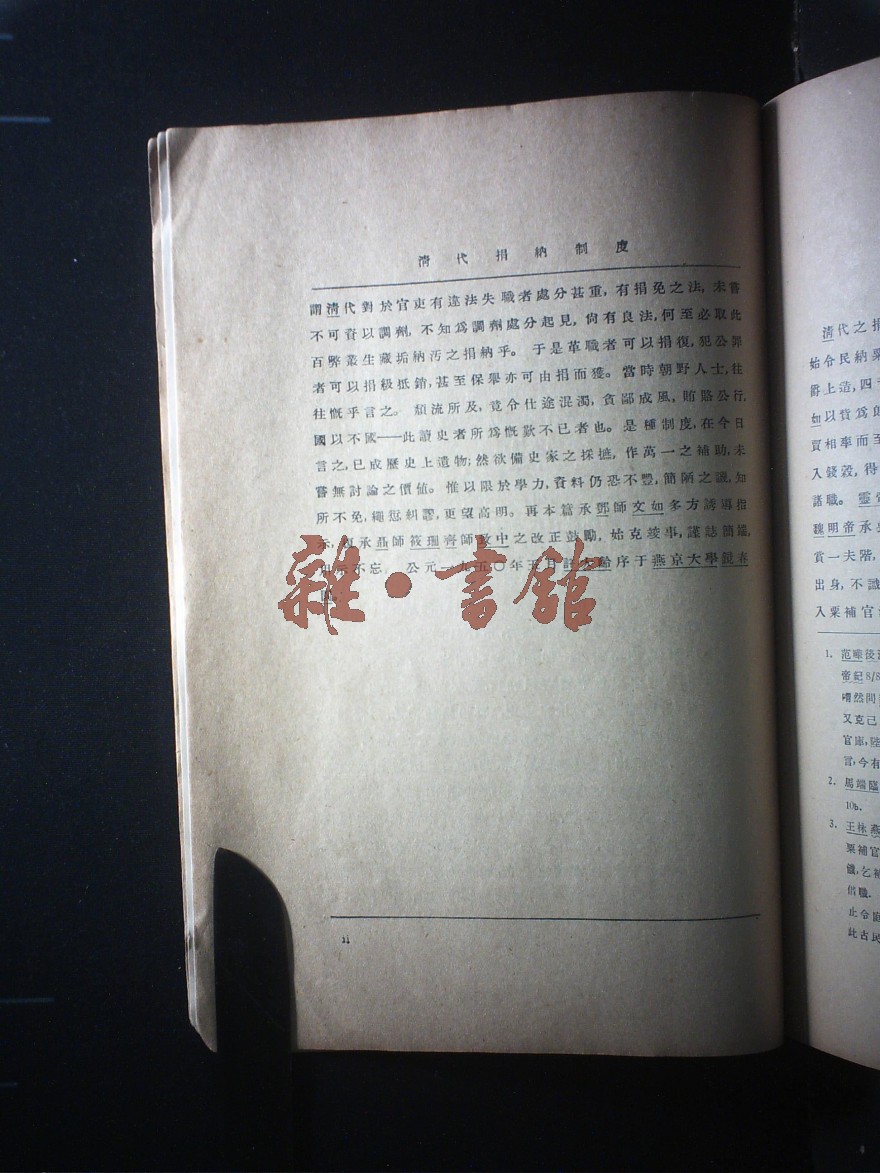 清代捐納制度
謂清代對於官吏有違法失職者處分甚重，有捐免之法，未嘗
不可資以調劑，不知爲調劑處分起見，尙有良法，何至必取此
百弊叢生藏垢納汚之捐納乎。于是革職者可以捐復，犯公罪
者可以捐級抵銷，甚至保舉亦可由捐而獲。當時朝野人士，往
往慨乎言之。頹流所及，竟令仕途混濁，貪鄙成風，賄賂公行，
國以不國——此讀史者所爲慨歎不已者也。是種制度，在今日
言之，已成歷史上遺物；然欲備史家之採摭，作萬一之補助，未
嘗無討論之價値。惟以限於學力，資料仍恐不豐，簡陋之譏，知
所不免，繩愆糾謬，更望高明。再本篇承鄧師文如多方誘導指
示，承聶師筱珊齊師致中之改正鼓勵，始克竣事，謹誌簡端，
不忘。公元一九五〇年五月許大齡序于燕京大學鏡春
ii
雜·書館
清代之捐
始令民納粟
爵上造，四
如以貲爲郎
買相率而至
入錢穀，得
諸職。靈帝
魏明帝承
貲一夫階，
出身，不識
入粟補官
1. 范曄後漢
帝紀8/8
喟然問
又克己
官庫，陸
言，今有
2. 馬端臨
10b.
3. 王栐燕
粟補官
儀，乞補
借職．
止令庭
此古民